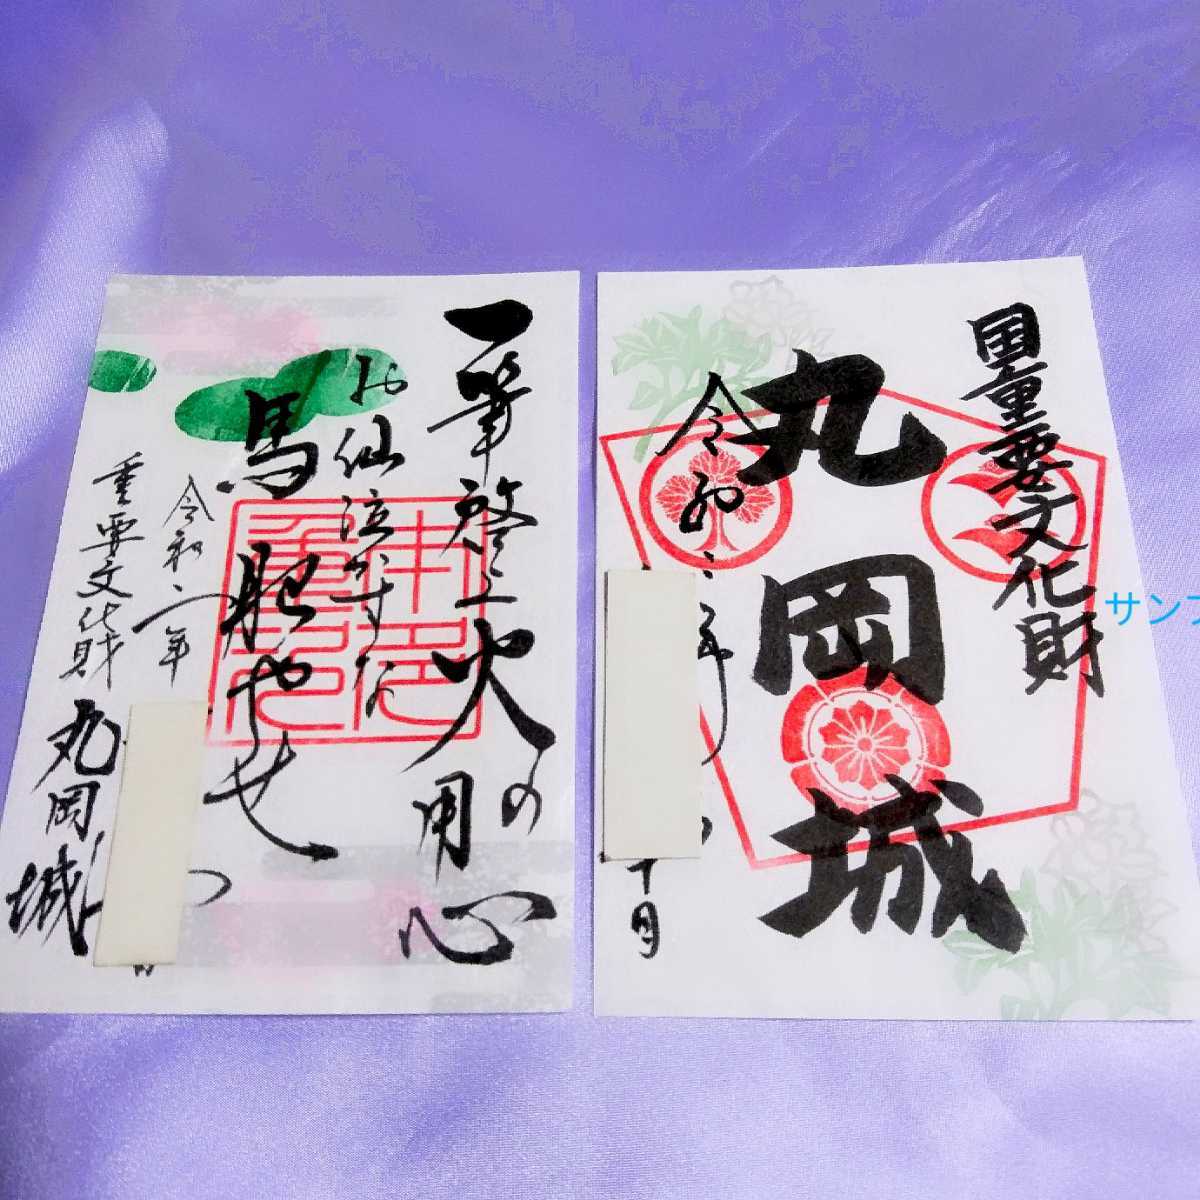 国重要文化財
丸岡城
令和二年
十月
サンプ
一筆啓上火の用心
お仙泣かすな
馬肥やせ
令和二年
重要文化財
丸岡城